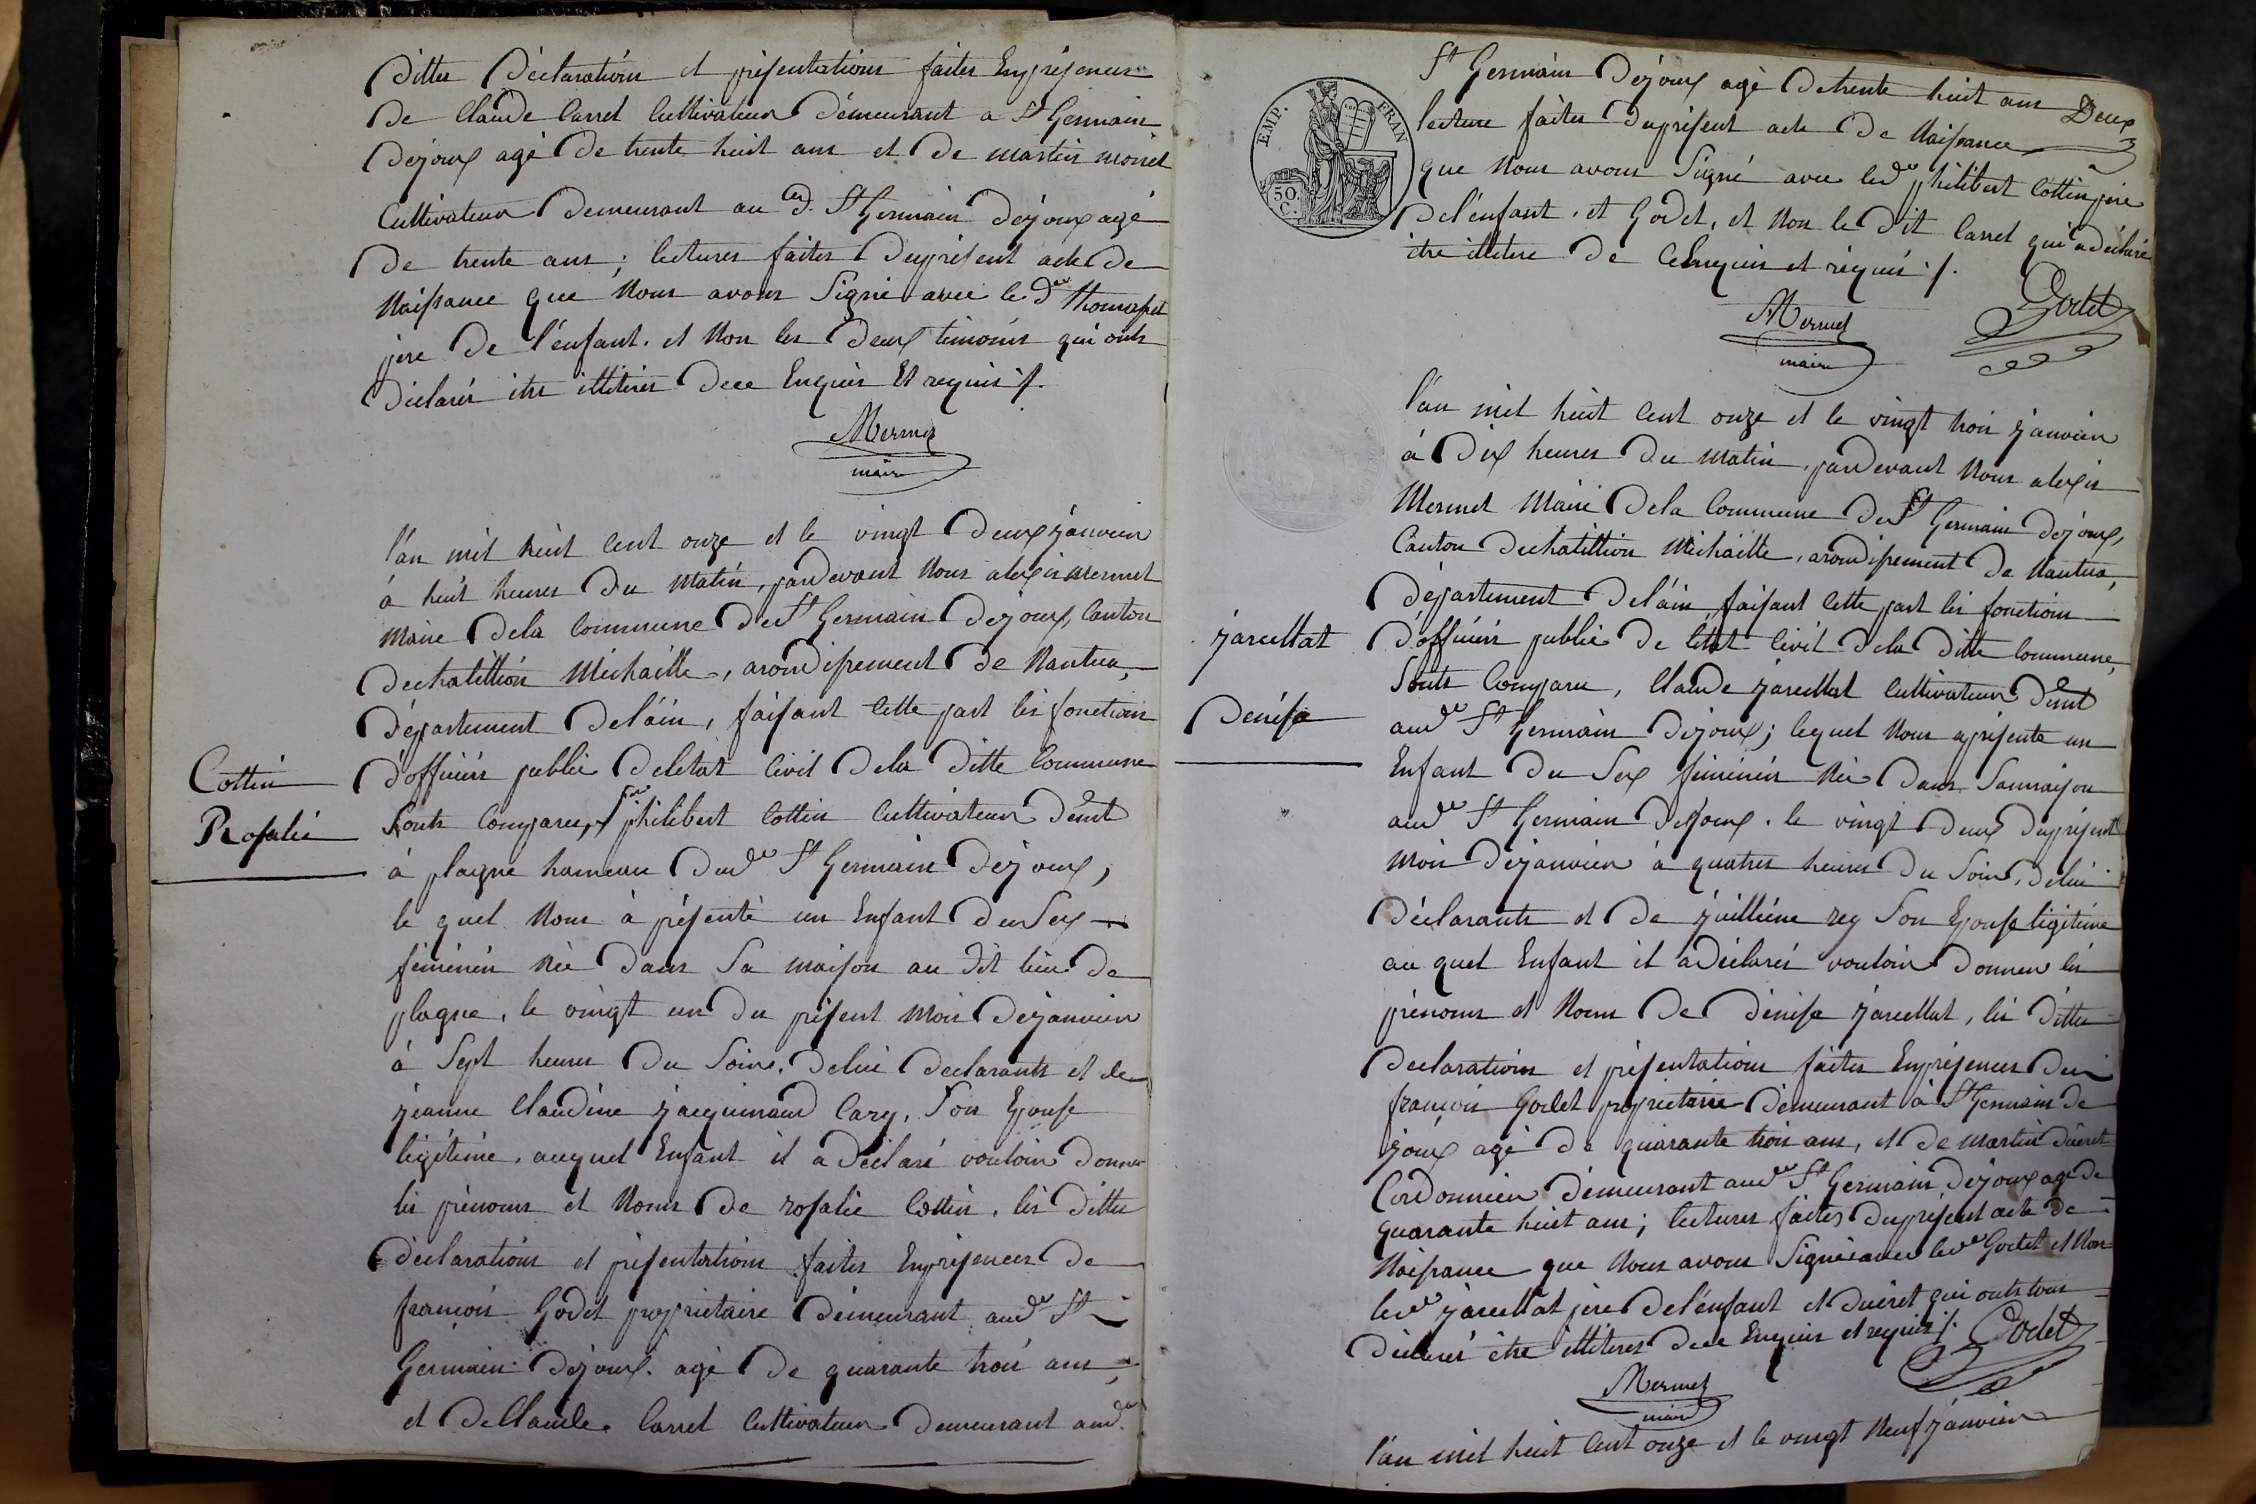 dittes déclarations et présentations faites En présences
de Claude Carrel Cultivateur démeurant a St Germain
dejoux agé de trente huit ans et de martin
Cultivateur demeurant au d. St Germain dejoux agé
de trente ans ; lectures faites du présent acte de
Naissance que Nous avons Signé avec le dt
pere de l'enfant. et Non les deux témoins qui onts
déclarés être illitérés de ce Enquis Et requis ./.
Mermet
maire
l'an mil huit Cent onze et le vingt deux janvier
à huit heures du matin, pardevant Nous alexis mermet
maire de la Commune de St Germain dejoux, Canton
de chatillion Michaille, arondissement de Nantua,
département de l'ain, faisant Cette part les fonctions
Cottin
d'officiér public de letat Civil de la ditte Commune
Rosalié
Sonts Comparu, philibert Cottin Cultivateur demt
à plagne hameau dudt St Germain dejoux,
le quel Nous à présenté un Enfant du Sex
féminén Née dans Sa maison au dit lieu de
plagne, le vingt un du présent mois de janvier
à Sept heures du Soire, de lui déclarants et de
jeanne Claudine jacquinaud Cary, Son Epouse
légitime, auquel Enfant il a déclaré vouloir donner
les prénoms et Noms de rosalie Cottin, les dittes
déclarations et présentations faites En présences de
françois Godet propriétaire démeurant audt St
Germain dejoux. agé de quarante trois ans,
et de Claude Carrel Cultivateur demeurant audt
EMP. FRAN
50. C.
St Germain dejoux agé de trente huit ans
Deux
lecture faites du présent acte de Naissance
que Nous avons Signé avec ledt philibert Cottin pere
de l'enfant. et Godet, et Non le dit Carrel qui a déclaré
être illitere de Ce Enquis et requis ./.
Mermet
maire
Godet
l'an mil huit Cent onze et le vingt trois janvier
à dix heures du matin, pardevant Nous alexis
Mermet Maire de la Commune de St Germain dejoux,
Canton de chatillion Michaille, arondissement de Nantua,
département de l'ain, faisant Cette part les fonctions
jarcellat
d'officiér public de létat Civil de la ditte Commune,
Sonts Comparu, Claude jarcellat Cultivateur demt
Denise
audt St Germain dejoux; lequel Nous a présenté un
Enfant du Sex féminén Née dans Sa maison
audt St Germain dejoux. le vingt deux du présent
mois de janvier à quatres heures du Soire, de lui
déclarants et de juilliéne rey Son Epouse légitime
au quel Enfant il a déclarés vouloir donner les
prénoms et Noms de dénise jarcellat, les dittes
déclarations et présentations faites En présences de
françois Godet propriétaire démeurant à St Germain de
joux agé de quarante trois ans, et de martin ducret
Cordonnier démeurant audt St Germain dejoux agé de
quarante huit ans; lectures faites du présent acte de
Naissance que Nous avons Signés avec ledt Godet et Non
ledt jarcellat pere de l'enfant et ducret qui onts tous
déclaré être illiteres de ce Enquis et requis ./.
Godet
Mermet
maire
l'an mil huit Cent onze et le vingt Neuf janvier